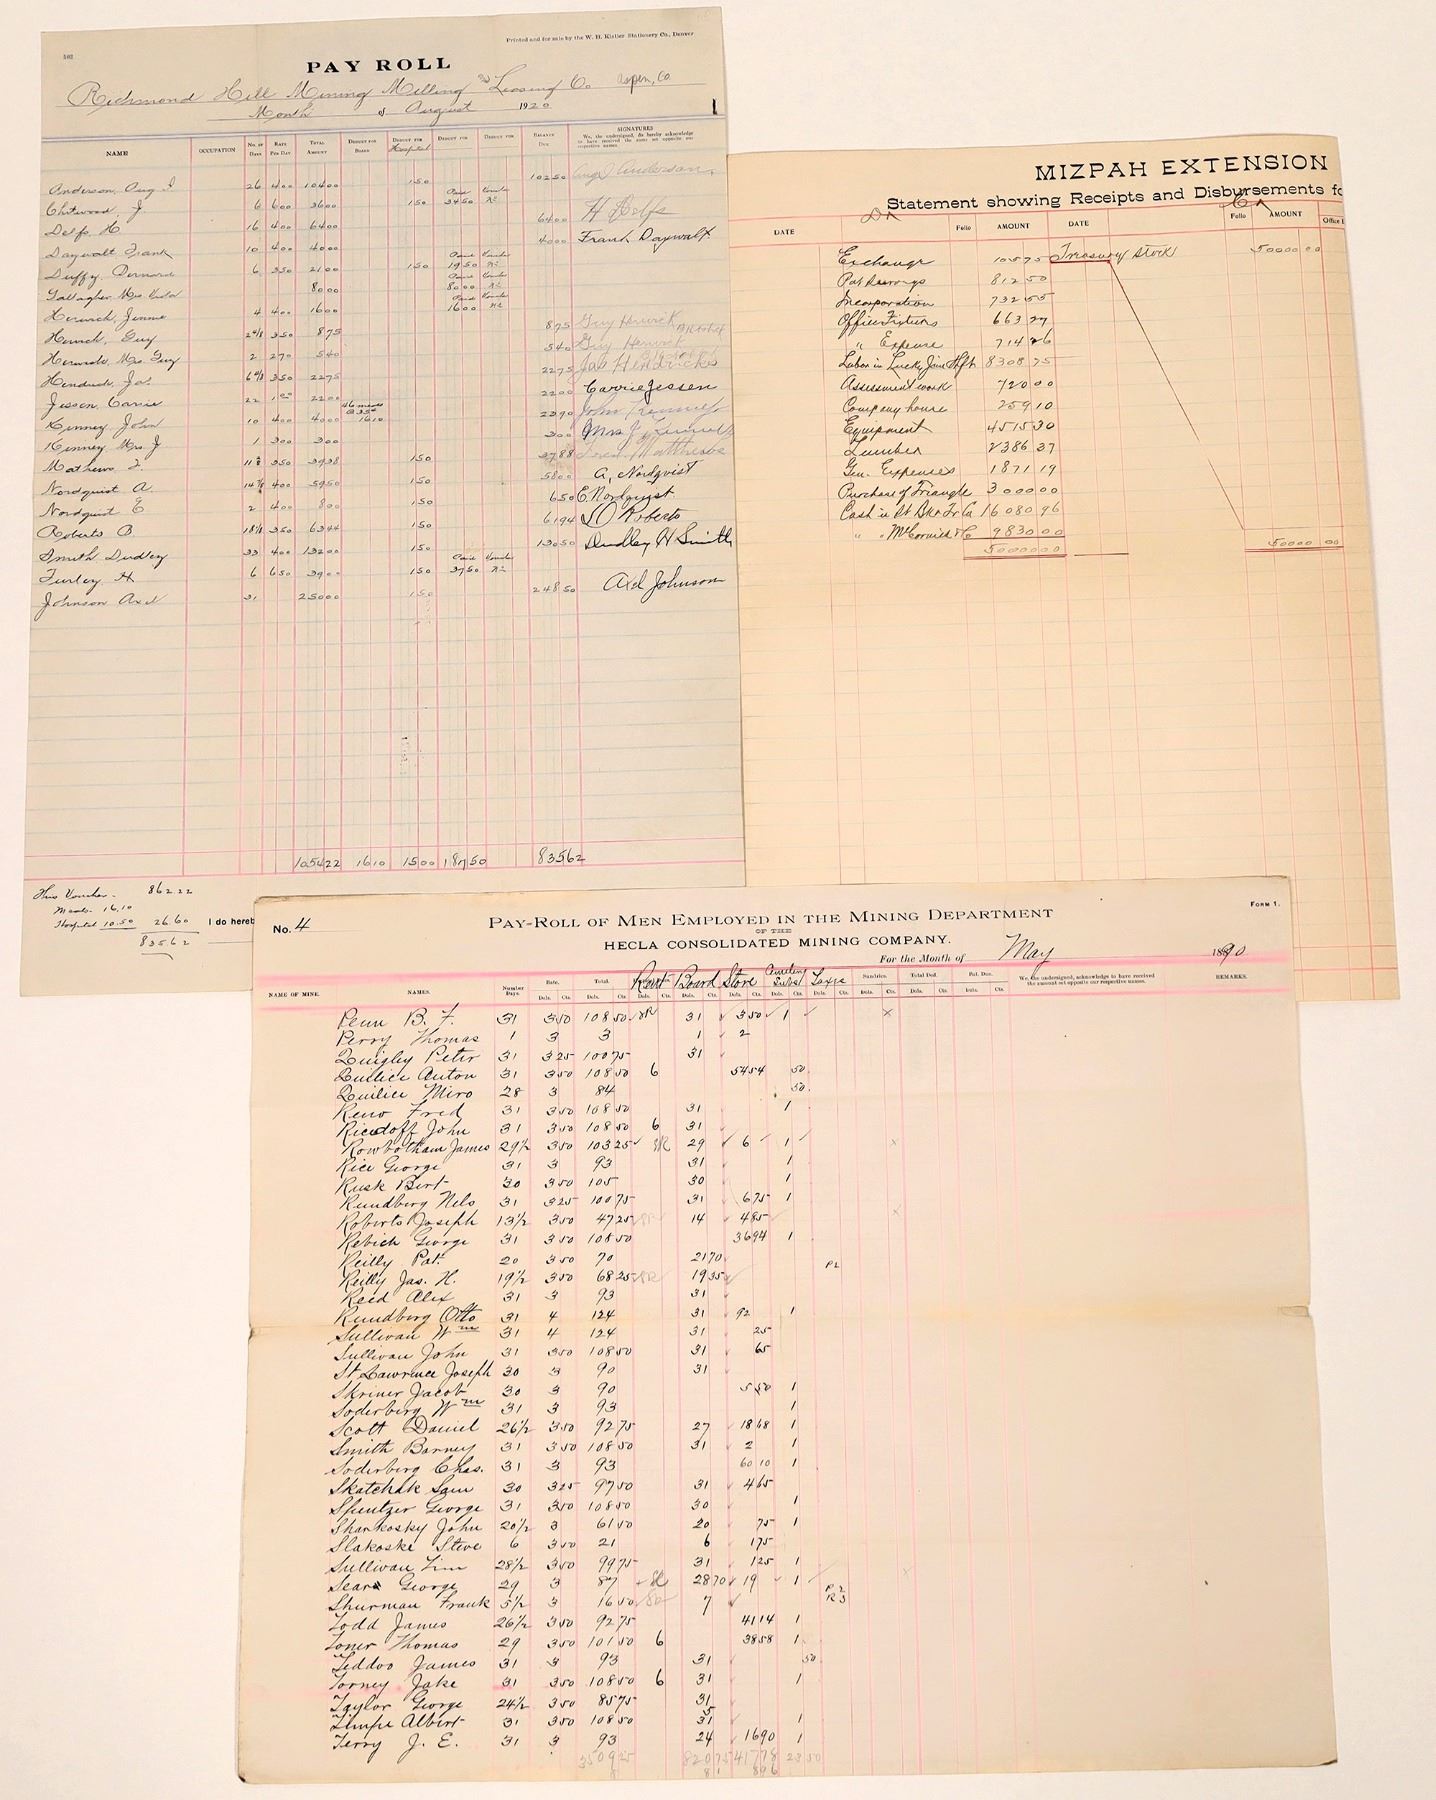 502
Printed and for sale by the W. H. Kistler Stationery Co., Denver
PAY ROLL
Richmond Hill Mining Milling and Leasing Co Aspen, Co
Month of August 1920
NAME OCCUPATION No. of Days RATE PER DAY TOTAL AMOUNT DEDUCT FOR BOARD DEDUCT FOR Hospital DEDUCT FOR DEDUCT FOR BALANCE DUE SIGNATURES
We, the undersigned, do hereby acknowledge to have received the sums set opposite our respective names.
Anderson, Aug J 26 400 10400 150 10250 Aug J Anderson
Chitwood, J. 6 600 3600 150 3450 Paid Voucher
Delfs H 16 400 6400 6400 H Delfs
Daywalt Frank 10 400 4000 4000 Frank Daywalt
Duffy, Bernard 6 350 2100 150 1950 Paid Voucher
Gallagher, Mrs 8000 8000 Paid Voucher
Herwick, Jimmie 4 400 1600 1600 Paid Voucher
Herwick, Guy 350 875 875 Guy Herwick
Herwick, Mrs. Guy 2 270 540 540 Guy Herwick
Hendricks, Jas. 350 2275 2275 Jas Hendricks
Jessen, Carrie 22 1.00 2200 2200 Carrie Jessen
Kinney, John 10 400 4000 46 meals @ 35¢ 1610 2390 John Kinney
Kinney, Mrs. J 1 300 300 300 Mrs J Kinney
Mathews 350 3938 150 3788 Matthews
Nordquist A. 400 5950 150 5800 A. Nordqvist
Nordquist E 2 400 800 150 650 E. Nordqvist
Roberts B. 350 6344 150 6194 Roberts
Smith Dudley 33 400 13200 150 13050 Dudley H Smith
Turley, H 6 650 3900 150 3750 Paid Voucher
Johnson Axel 31 25000 150 24850 Axel Johnson
105422 1610 1500 18750 83562
This Voucher 862.22
Meals 16.10
Hospital 10.50 26.60
835.62
I do hereb
MIZPAH EXTENSION
Statement showing Receipts and Disbursements fo
Dr Cr
DATE Folio AMOUNT DATE Folio AMOUNT Office
Exchange 10575 Treasury Stock 50000 00
81250
Incorporation 73255
Office Fixtures 66327
" Expense 71426
Labor in Lucky Jim Shft 830875
Assessment work 72000
Company house 25910
Equipment 451530
Lumber 238637
Gen. Expenses 187119
Purchase of Triangle 300000
Cash in St Bk & Tr Co 16080 96
" " McCornick & Co 983000
5000000 50000 00
No. 4
PAY-ROLL OF MEN EMPLOYED IN THE MINING DEPARTMENT
OF THE
HECLA CONSOLIDATED MINING COMPANY.
FORM 1.
For the Month of May 1890
NAME OF MINE. NAMES. Number Days. Rate. Total. Rent Board Store Taxes Sundries. Total Ded. Pat. Due. We, the undersigned, acknowledge to have received the amount set opposite our respective names. REMARKS.
Dols. Cts. Dols. Cts. Dols. Cts. Dols. Cts. Dols. Cts. Dols. Cts. Dols. Cts. Dols. Cts. Dols. Cts. Dols. Cts.
Penn B. F. 31 350 10850 SR 31 350 1 x
Perry Thomas 1 3 3 1 2
Quigley Peter 31 325 10075 31
Quilici Anton 31 350 10850 6 5454 50
Quilici Miro 28 3 84 50
Reno Fred 31 350 10850 31 1
Ricdoff John 31 350 10850 6 31
Rowbotham James 29½ 350 10325 SR 29 6 1 x
Rice George 31 3 93 31 1
Rusk Bert 30 350 105 30 1
Rundberg Nels 31 325 10075 31 675 1
Roberts Joseph 13½ 350 4725 SR 14 485 x
Rebich George 31 350 10850 3694 1
Reilly Pat. 20 350 70 2170 P2
Reilly Jas. H. 19½ 350 6825 SR 1935
Reed Alex 31 3 93 31
Rundberg Otto 31 4 124 31 92 1
Sullivan Wm 31 4 124 31 25
Sullivan John 31 350 10850 31 65
St Lawrence Joseph 30 3 90 31
Skriner Jacob 30 3 90 550 1
Soderberg Wm 31 3 93 1
Scott Daniel 26½ 350 9275 27 1868 1
Smith Barney 31 350 10850 31 2 1
Soderberg Chas. 31 3 93 6010 1
Skatchak Sam 30 325 9750 31 465
Spentzer George 31 350 10850 30 1
Sharkosky John 20½ 3 6150 20 75 1
Slakoske Steve 6 350 21 6 175
Sullivan Tim 28½ 350 9975 31 125 1
Sears George 29 3 87 SR 2870 19 1 P2
Shurman Frank 5½ 3 1650 SR 7 R3
Todd James 26½ 350 9275 4114 1
Toner Thomas 29 350 10150 6 3858 1
Teddoo James 31 3 93 31 50
Torney Jake 31 350 10850 6 31 1
Taylor George 24½ 350 8575 31
Timpe Albert 31 350 10850 31 1
Terry J. E. 31 3 93 24 1690 1
350925 82075 41778 2350
81 896